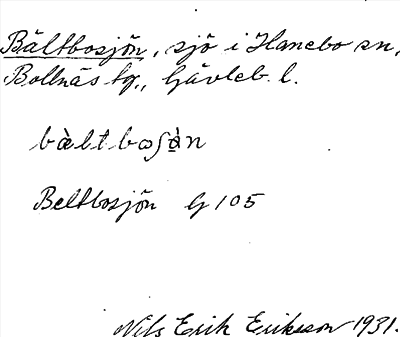 Bältbosjön, sjö i Hanebo sn,
Bollnäs tg., Gävleb. l.
bàltboʃə̀n
Beltbosjön G 105
Nils Erik Eriksson 1931.